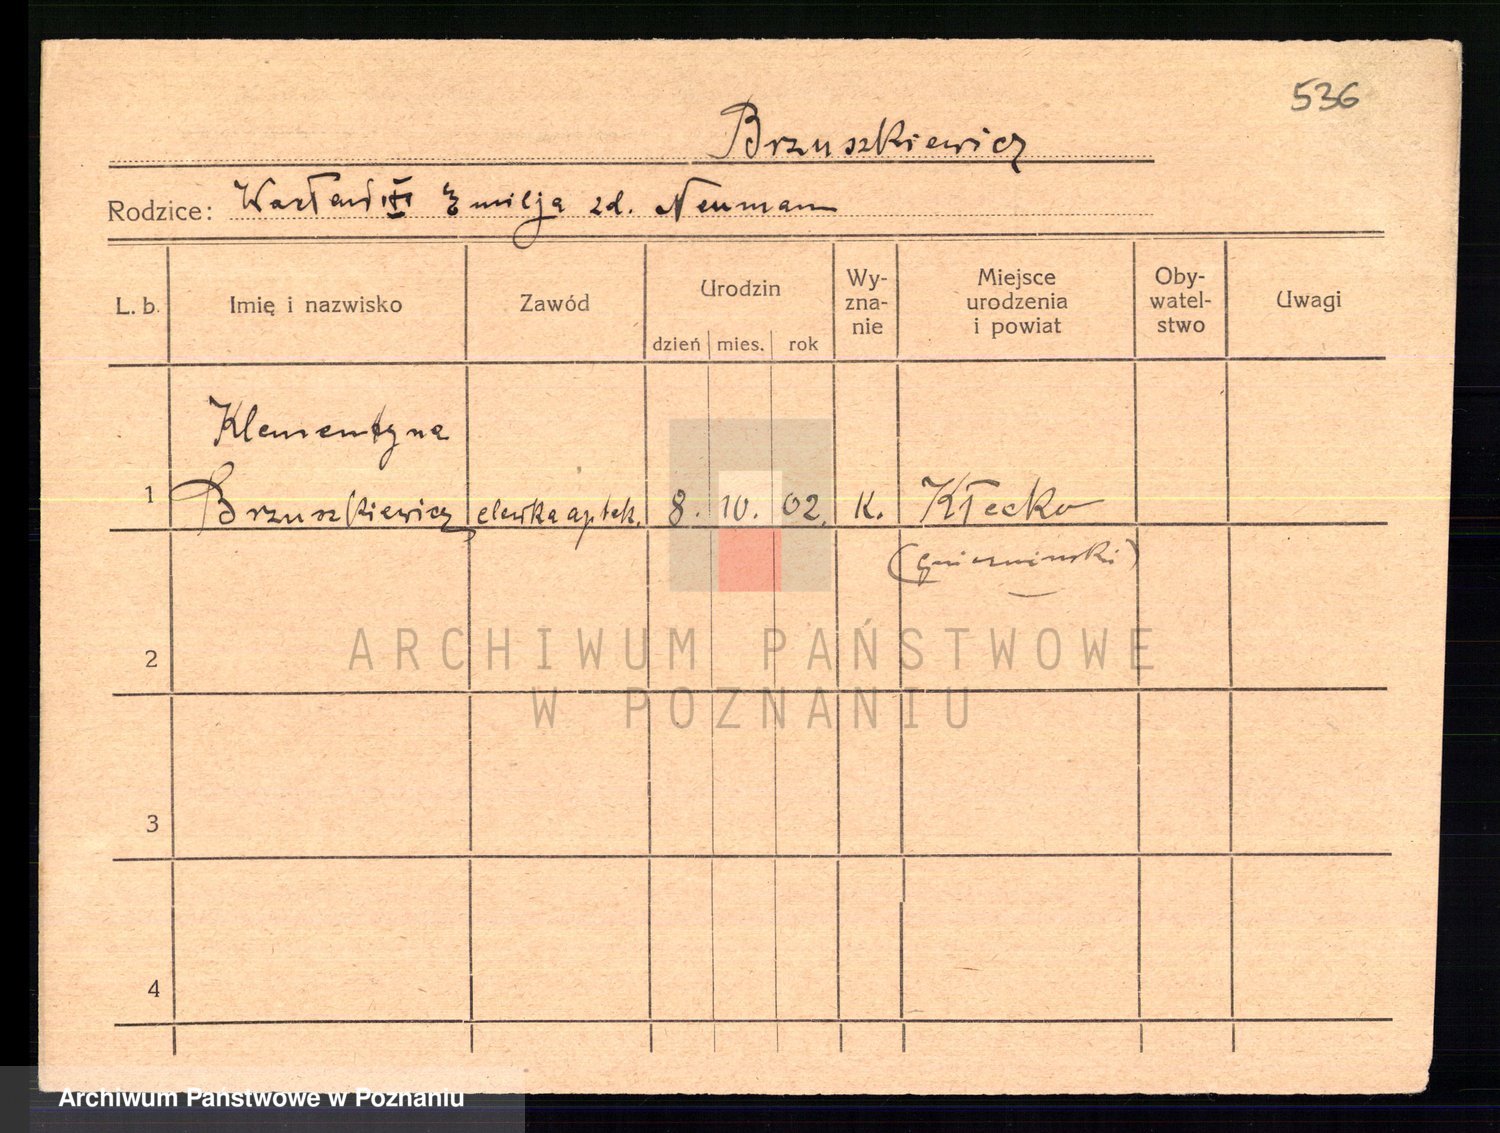 536
Brzuszkiewicz
Rodzice: Wacław i Emilja zd. Neumann
L. b. Imię i nazwisko Zawód Urodzin dzień mies. rok Wy-zna-nie Miejsce urodzenia i powiat Oby-watel-stwo Uwagi
Klementyna
1 Brzuszkiewicz elewka aptek. 8. 10. 02. K. Kłecko
(gnieźnieński)
2
3
4
ARCHIWUM PAŃSTWOWE
W POZNANIU
Archiwum Państwowe w Poznaniu